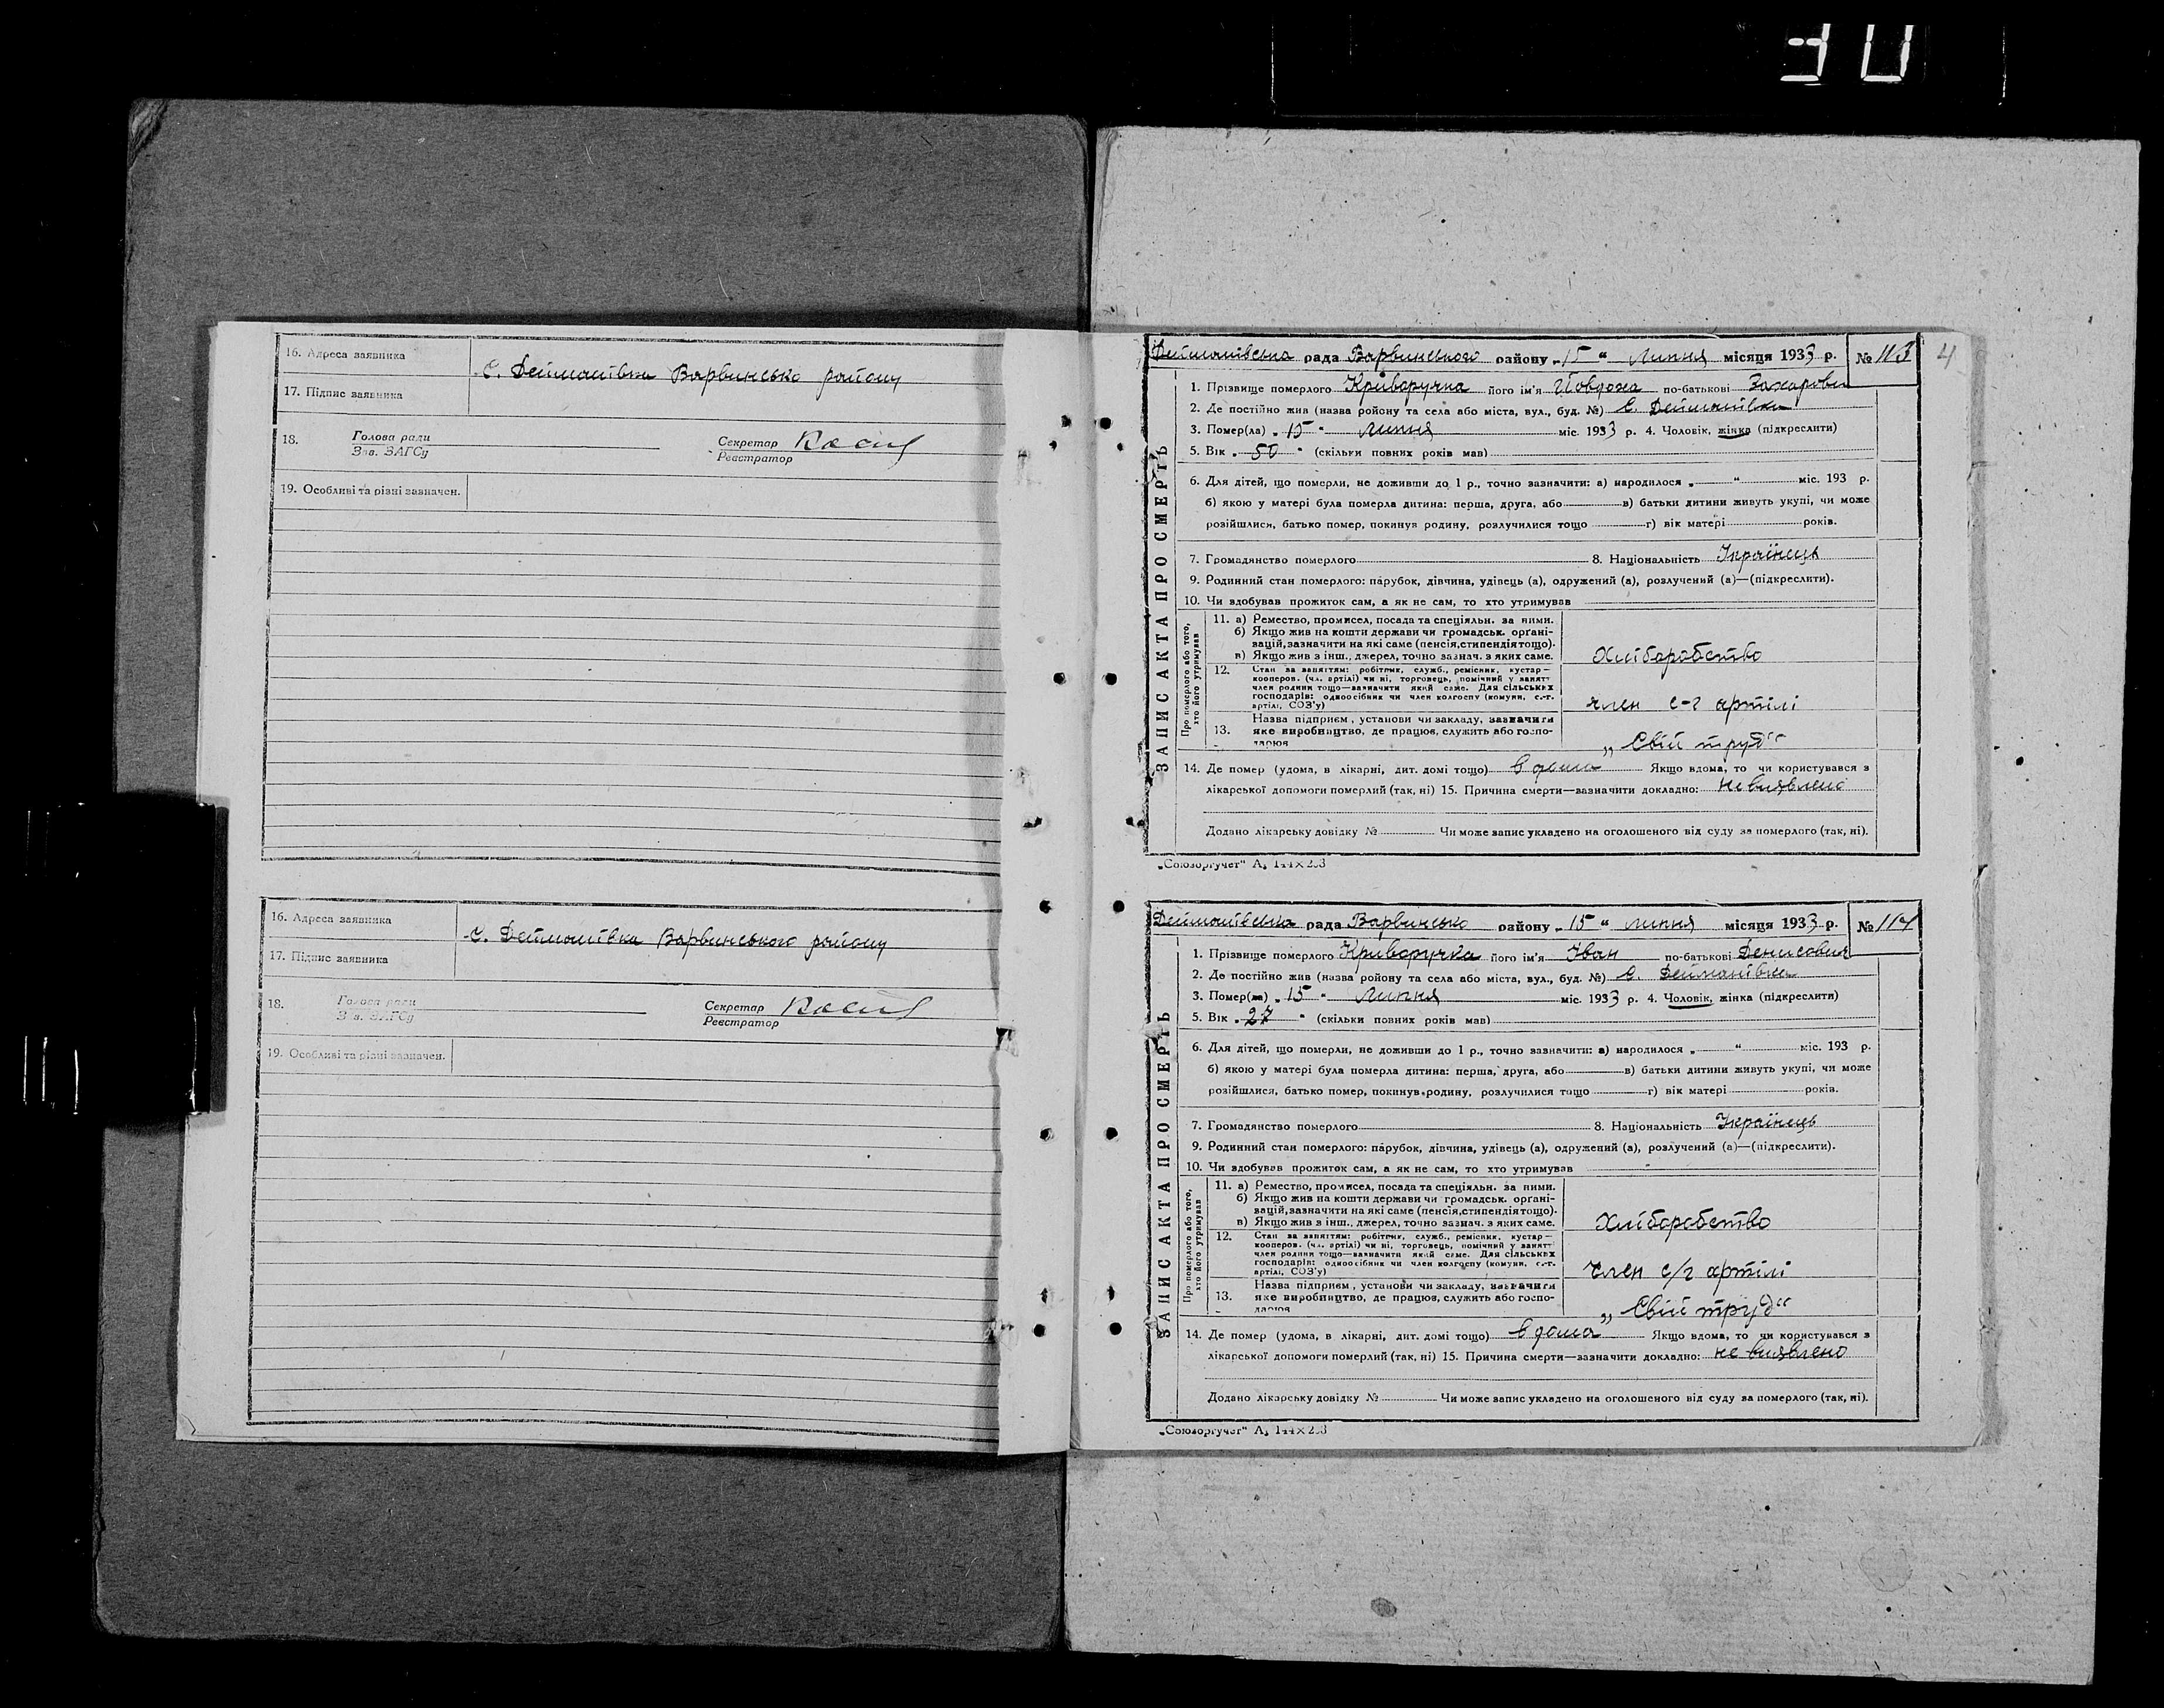 16. Адреса заявника
с. Дейманівка Варвинсько району
17. Підпис заявника
18. Голова ради
Зав. ЗАГСу
Секретар
Реєстратор
19. Особливі та різні зазначен.
16. Адреса заявника
с. Дейманівка Варвинського району
17. Підпис заявника
18. Голова ради
Зав. ЗАГСу
Секретар
Реєстратор
19. Особливі та різні зазначен.
4
ЗАПИС АКТА ПРО СМЕРТЬ
Дейманівська рада Варвинського району „15“ Липня місяця 1933 р. № 113
1. Прізвище померлого Криворучка його ім'я Йовдоха по-батькові Захарови
2. Де постійно жив (назва району та села або міста, вул., буд. №) С. Дейманівка
3. Помер(ла) „15“ Липня міс. 1933 р. 4. Чоловік, жінка (підкреслити)
5. Вік „50“ (скільки повних років мав)
6. Для дітей, що померли, не доживши до 1 р., точно зазначити: а) народилося „ “ міс. 193 р.
б) якою у матері була померла дитина: перша, друга, або в) батьки дитини живуть укупі, чи може
розійшлися, батько помер, покинув родину, розлучилися тощо г) вік матері років.
7. Громадянство померлого 8. Національність Українець
9. Родинний стан померлого: парубок, дівчина, удівець (а), одружений (а), розлучений (а)—(підкреслити).
10. Чи здобував прожиток сам, а як не сам, то хто утримував
Про померлого або того, хто його утримував
11. а) Ремество, промисел, посада та спеціяльн. за ними.
б) Якщо жив на кошти держави чи громадськ. організацій, зазначити на які саме (пенсія, стипендія тощо).
в) Якщо жив з інш., джерел, точно зазнач. з яких саме.
Хліборобство
12. Стан за заняттям: робітник, служб., ремісник, кустар—
кооперов. (чл. артілі) чи ні, торговець, помічний у занятт
член родини тощо—зазначити який саме. Для сільських
господарів: одноосібник чи член колгоспу (комуни, с.-г.
артілі, СОЗ'у)
член с-г артілі
13. Назва підприєм., установи чи закладу, зазначити
яке виробництво, де працює, служить або госпо-
дарює
„Свій труд“
14. Де помер (удома, в лікарні, дит. домі тощо) вдома Якщо вдома, то чи користувався з
лікарської допомоги померлий (так, ні) 15. Причина смерти—зазначити докладно: не виявлено
Додано лікарську довідку № Чи може запис укладено на оголошеного від суду за померлого (так, ні).
„Союзоргучет“
ЗАПИС АКТА ПРО СМЕРТЬ
Дейманівська рада Варвинсько району „15“ липня місяця 1933 р. № 114
1. Прізвище померлого Криворучка його ім'я Іван по-батькові Денисович
2. Де постійно жив (назва району та села або міста, вул., буд. №) С. Дейманівка
3. Помер(ла) „15“ Липня міс. 1933 р. 4. Чоловік, жінка (підкреслити)
5. Вік „27“ (скільки повних років мав)
6. Для дітей, що померли, не доживши до 1 р., точно зазначити: а) народилося „ “ міс. 193 р.
б) якою у матері була померла дитина: перша, друга, або в) батьки дитини живуть укупі, чи може
розійшлися, батько помер, покинув родину, розлучилися тощо г) вік матері років.
7. Громадянство померлого 8. Національність Українець
9. Родинний стан померлого: парубок, дівчина, удівець (а), одружений (а), розлучений (а)—(підкреслити).
10. Чи здобував прожиток сам, а як не сам, то хто утримував
Про померлого або того, хто його утримував
11. а) Ремество, промисел, посада та спеціяльн. за ними.
б) Якщо жив на кошти держави чи громадськ. організацій, зазначити на які саме (пенсія, стипендія тощо).
в) Якщо жив з інш., джерел, точно зазнач. з яких саме.
Хліборобство
12. Стан за заняттям: робітник, служб., ремісник, кустар—
кооперов. (чл. артілі) чи ні, торговець, помічний у занятт
член родини тощо—зазначити який саме. Для сільських
господарів: одноосібник чи член колгоспу (комуни, с.-г.
артілі, СОЗ'у)
член с/г артілі
13. Назва підприєм., установи чи закладу, зазначити
яке виробництво, де працює, служить або госпо-
дарює
„Свій труд“
14. Де помер (удома, в лікарні, дит. домі тощо) вдома Якщо вдома, то чи користувався з
лікарської допомоги померлий (так, ні) 15. Причина смерти—зазначити докладно: не виявлено
Додано лікарську довідку № Чи може запис укладено на оголошеного від суду за померлого (так, ні).
„Союзоргучет“